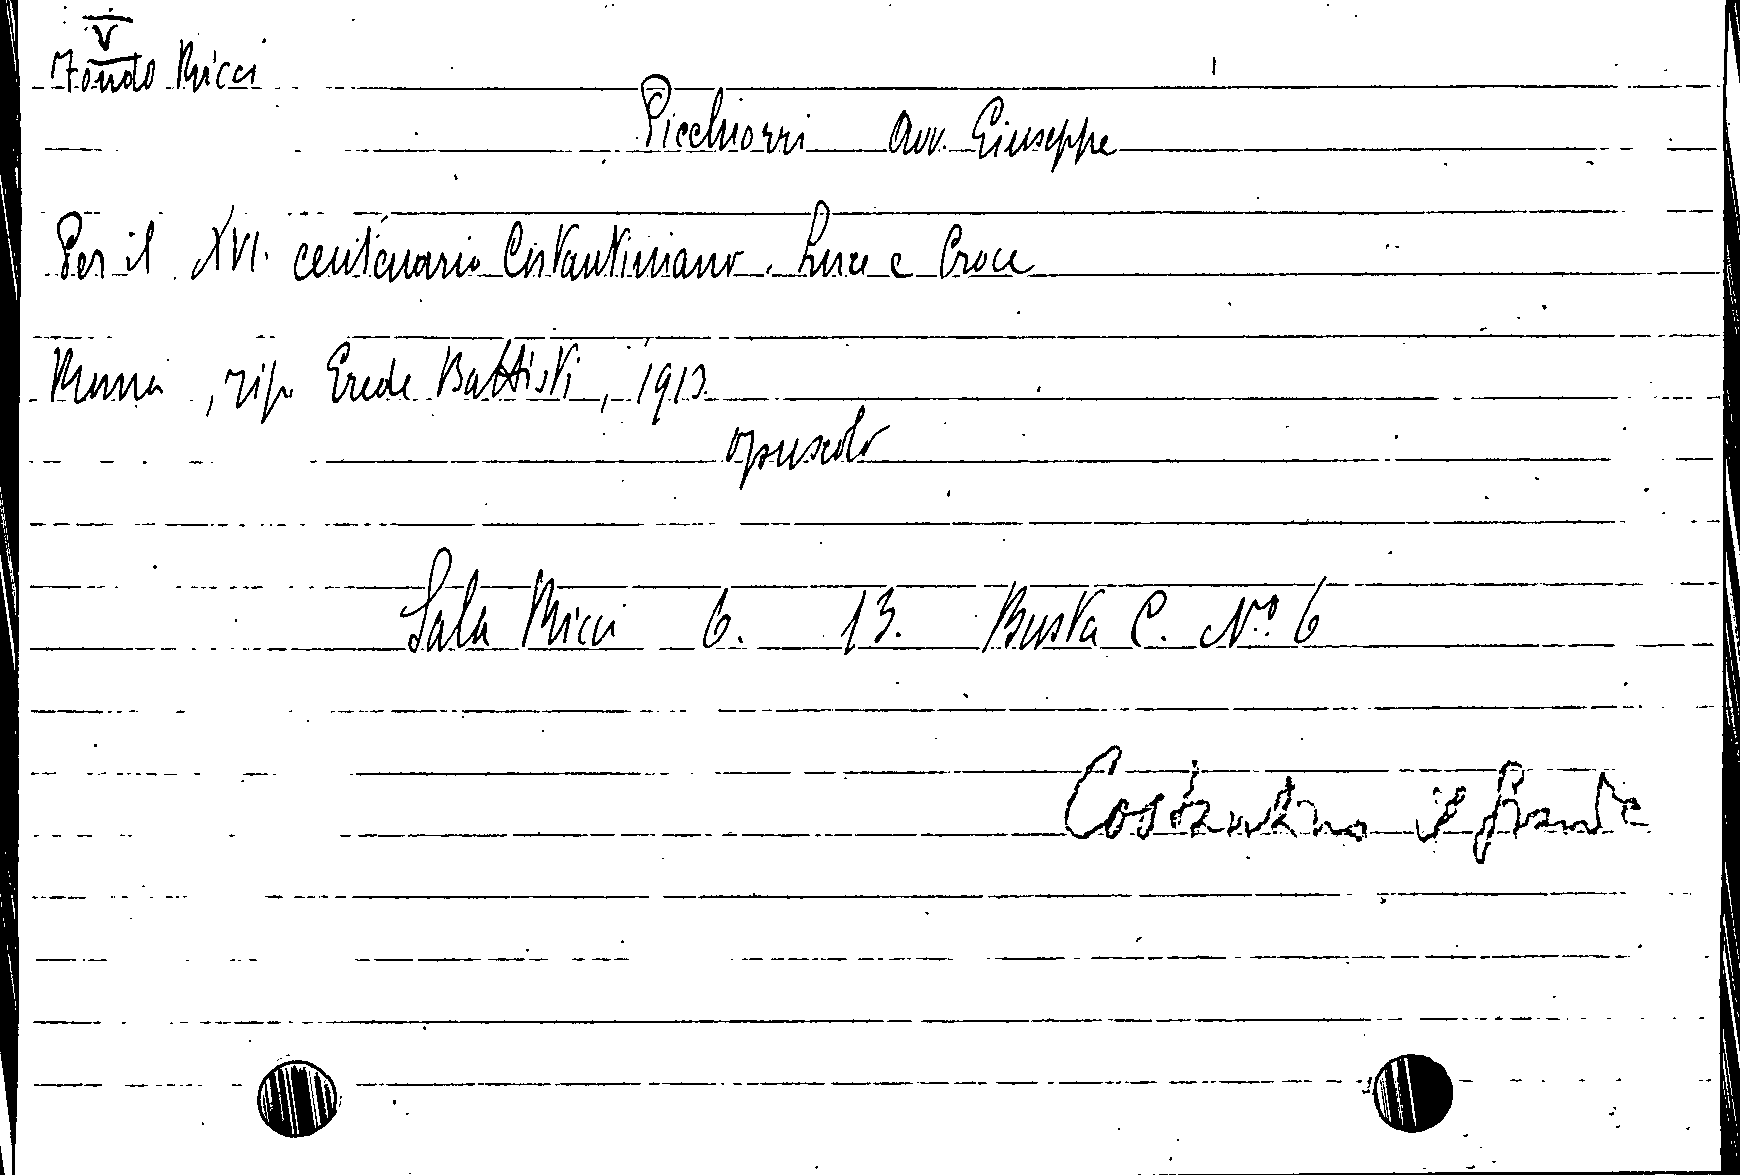 V
Fondo Ricci
Picchiorri Avv. Giuseppe
Per il XVI. centenario Costantiniano. Luce e Croce
Roma, tip. Erede Battisti, 1913.
opuscolo
Sala Ricci 6. 13. Busta C. N.º 6
Costantino il grande